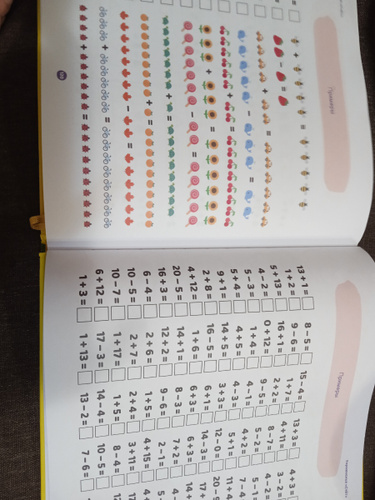 Примеры
Примеры
13 + 1 = 8 - 5 = 15 - 4 = 13 + 3 =
1 + 2 = 9 - 6 = 1 + 7 = 4 + 11 =
5 + 13 = 16 + 1 = 2 + 2 = 8 - 7 =
4 - 2 = 0 + 12 = 9 - 5 = 5 - 2 =
5 - 3 = 1 + 4 = 4 - 1 = 4 + 2 =
5 + 4 = 4 + 5 = 4 - 3 = 5 + 1 =
9 + 1 = 14 + 5 = 3 + 3 = 12 - 0 =
2 + 8 = 16 - 5 = 6 + 1 = 14 - 3 =
4 + 12 = 1 + 6 = 6 + 3 = 6 + 3 =
20 - 5 = 14 + 1 = 8 - 3 = 7 + 2 =
16 + 3 = 12 + 2 = 9 - 6 = 2 - 1 =
6 - 4 = 2 + 6 = 1 + 5 = 4 + 15 =
10 - 5 = 2 + 7 = 2 + 4 = 3 + 11 =
10 - 7 = 1 + 17 = 1 + 5 = 8 - 4 =
6 + 12 = 17 - 3 = 14 - 4 = 10 - 5 =
1 + 3 = 1 + 13 = 13 - 2 = 7 - 6 =